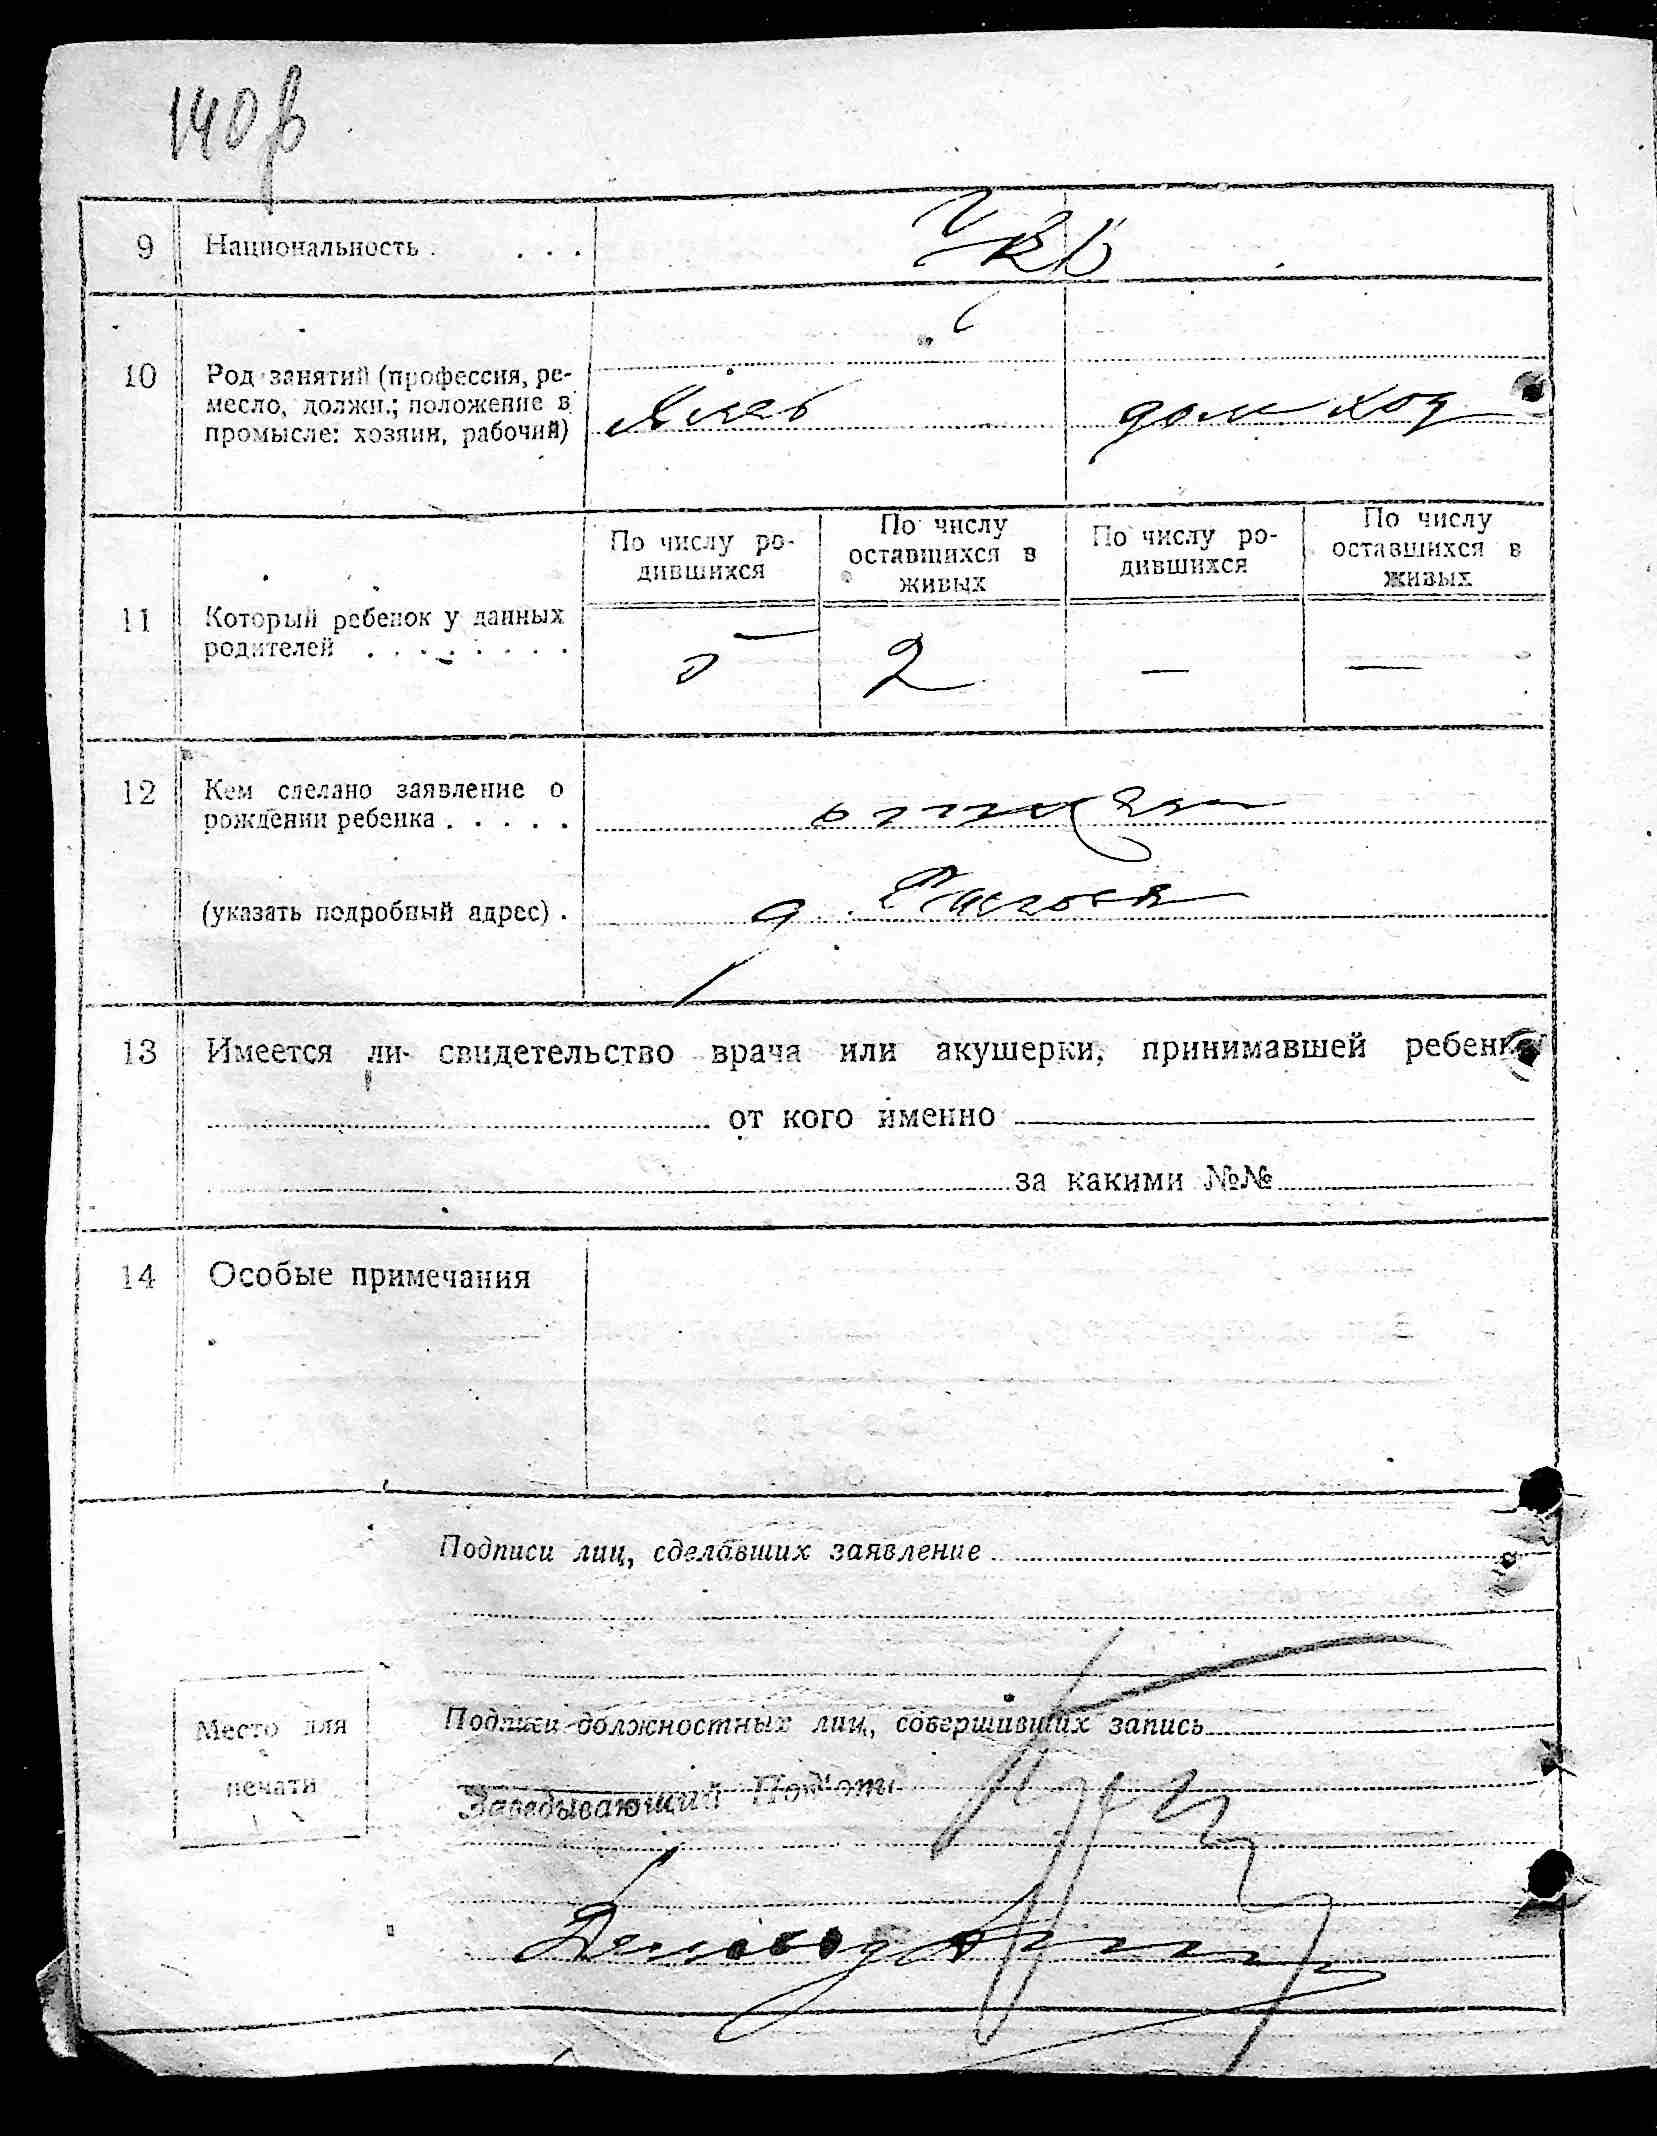 140 в
9 Национальность . . . . Укр
10 Род занятий (профессия, ре-
месло, должн.; положение в
промысле: хозяин, рабочий)
дом хоз
По числу ро-
дившихся
По числу
оставшихся в
живых
По числу ро-
дившихся
По числу
оставшихся в
живых
11 Который ребенок у данных
родителей . . . . . . . .
5 2 — —
12 Кем сделано заявление о
рождении ребенка . . . . .
(указать подробный адрес) .
13 Имеется ли свидетельство врача или акушерки, принимавшей ребенка
от кого именно
за какими №№
14 Особые примечания
Подписи лиц, сделавших заявление
Подписи должностных лиц, совершивших запись
Место для
печати
Заведывающий
Деловод